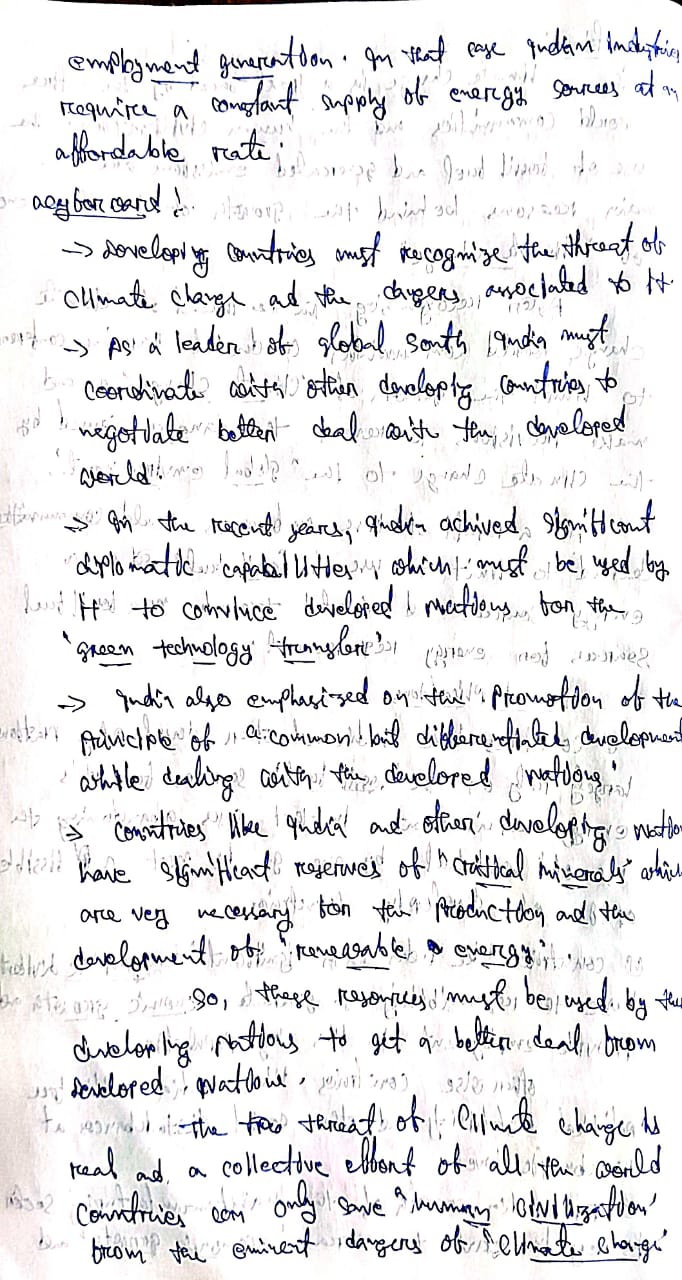 employment generation. In that case Indian industries
require a constant supply of energy sources at an
affordable rate.
wayforward :
→ Developing countries must recognize the threat of
climate change ad the dangers associated to it.
→ As a leader of global south, India must
coordinate with other developing countries to
negotiate better deal with the developed
world.
→ In the recent years, India achived significant
diplomatic capabilities, which must be used by
it to convince developed nations for the
'green technology transfer'.
→ India also emphasized on the promotion of the
principle of "a common but differentiated development
while dealing with the developed nations'
→ Countries like India and other developing natio
have significant reserves of "critical minerals" whic
are very necessary for the production and the
development of "renewable energy".
So, these resources must be used by the
developing nations to get a better deal from
developed nations.
The threat of climate change is
real ad a collective effort of all the world
countries can only save "human civilization'
from the eminent dangers of "climate change'